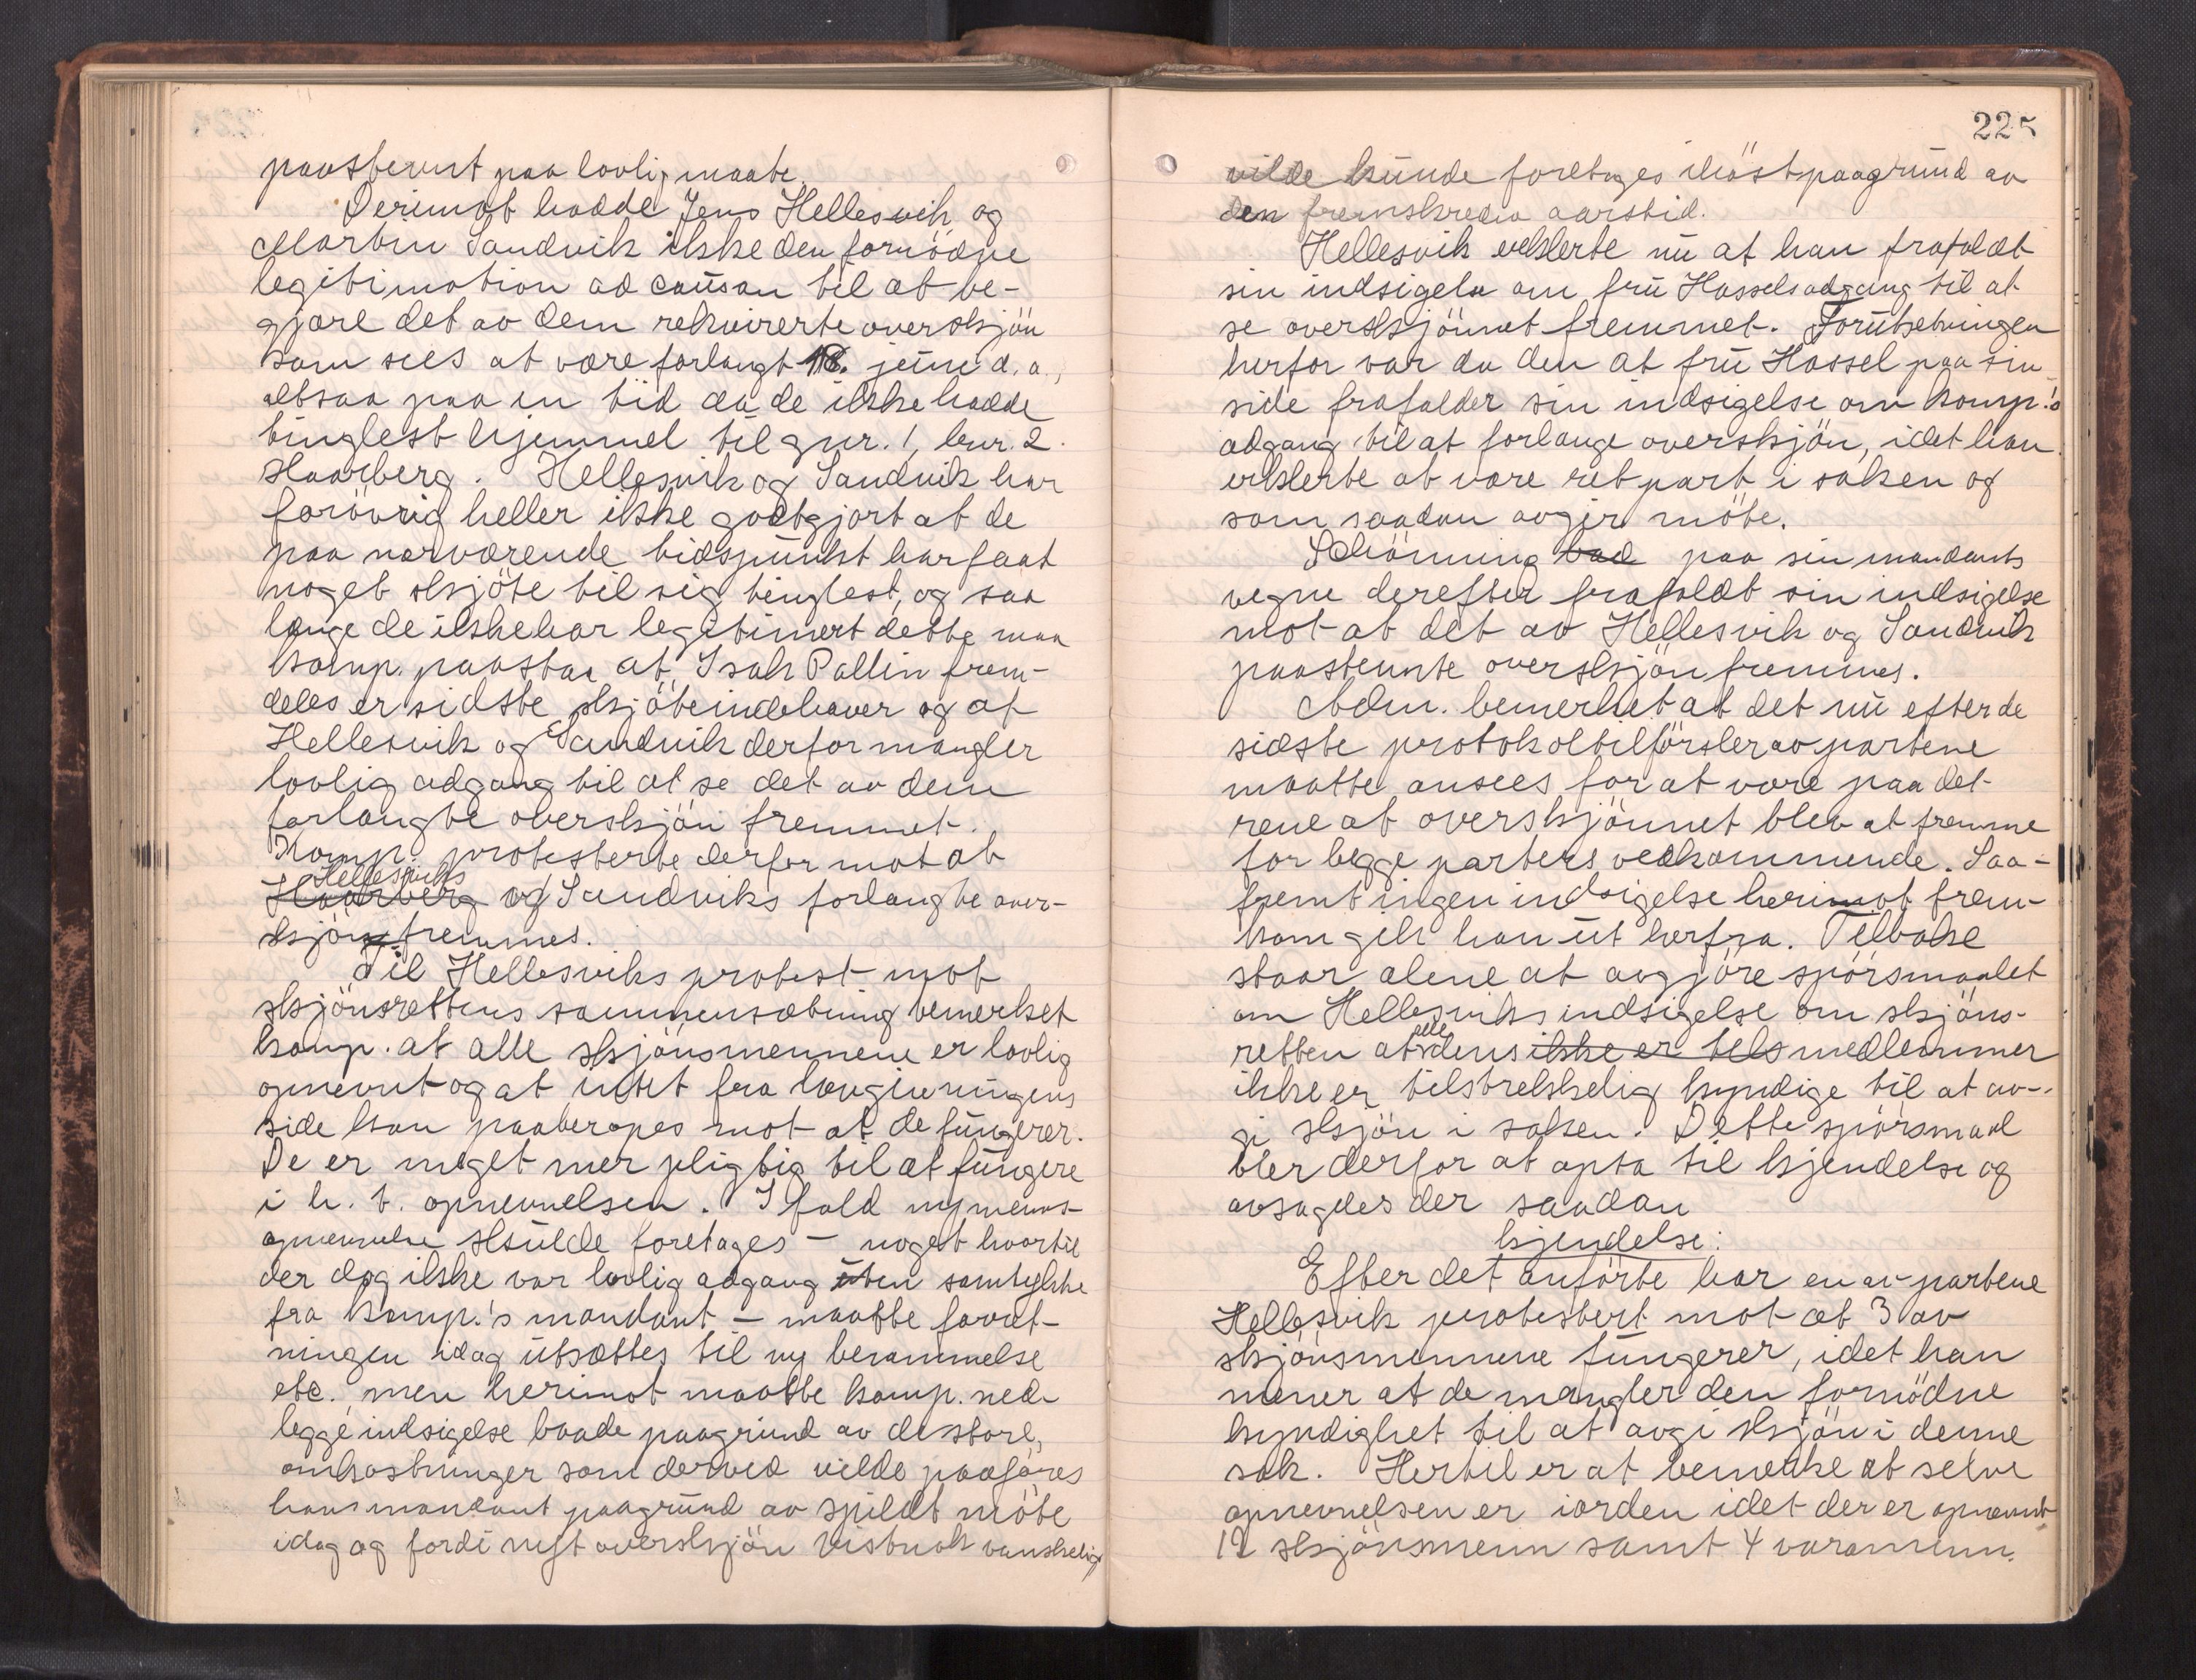 paastevnt paa lovlig maate.
Derimot hadde Jens Hellesvik og
Martin Sandvik ikke den fornödne
legitimation ad causan til at be-
gjære det av dem rekvirerte overskjön
som sees at være forlangt 18. juni d. a.,
altsaa paa en tid da de ikke hadde
tinglest hjemmel til gnr. 1, bnr. 2
Haarberg. Hellesvik og Sandvik har
forövrig heller ikke godtgjort at de
paa nærværende tidspunkt har faat
noget skjöte til sig tinglest, og saa
længe de ikke har legitimert dette maa
komp. paastaa at Isak Pallin frem-
deles er sidste skjöteindehaver og at
Hellesvik og Sandvik derfor mangler
lovlig adgang til at se det av dem
forlangte overskjön fremmet.
Komp. protesterte derfor mot at
Hellesviks
Haarberg og Sandviks forlangte over-
skjön fremmes.
Til Hellesviks protest mot
skjönsrettens sammensætning bemerket
komp. at alle skjönsmennene er lovlig
opnevnt og at intet fra lovgivningens
side kan paaberopes mot at de fungerer.
De er meget mer pligtig til at fungere
i h. t. opnevnelsen. I fald ny mens-
opnevnelse skulde foretages - noget hvortil
der dog ikke var lovlig adgang uten samtykke
fra komp.'s mandant - maatte forret-
ningen idag utsættes til ny berammelse
etc. men herimot maatte komp. ned-
legge indsigelse baade paagrund av de store
omkostninger som derved vilde paaföres
hans mandant paagrund av spildt möte
idag og fordi nyt overskjön vistnok vanskelig
225
vilde kunde foretages ihöst paagrund av
den fremskredne aarstid.
Hellesvik erklerte nu at han frafaldt
sin indsigelse om fru Hassels adgang til at
se overskjönnet fremmet. Forutsetningen
herfor var da den at fru Hassel paa sin
side frafalder sin indsigelse om komp.'s
adgang til at forlange overskjön, idet han
erklerte at være ret part i saken og
som saadan avgir möte.
Schönning bad paa sin mandants
vegne derefter frafaldt sin indsigelse
mot at det av Hellesvik og Sandvik
paastevnte overskjön fremmes.
Adm. bemerket at det nu efter de
sidste protokoltilförsler av partene
maatte ansees for at være paa det
rene at overskjönnet blev at fremme
for begge parters vedkommende. Saa-
fremt ingen indsigelse herimot frem-
kom gik han ut herfra. Tilbake
staar alene at avgjöre spörsmaalet
om Hellesviks indsigelse om skjöns-
alle
retten at dens ikke er tils medlemmer
ikke er tilstrekkelig kyndige til at av-
gi skjön i saken. Dette spörsmaal
blev derfor at opta til kjendelse og
avsagdes der saadan
kjendelse:
Efter det anförte har en av partene
Hellesvik protestert mot at 3 av
skjönsmennene fungerer, idet han
mener at de mangler den fornödne
kyndighet til at avgi skjön i denne
sak. Hertil er at bemerke at selve
opnevnelsen er iorden idet der er opnevnt
12 skjönsmenn samt 4 varamenn.